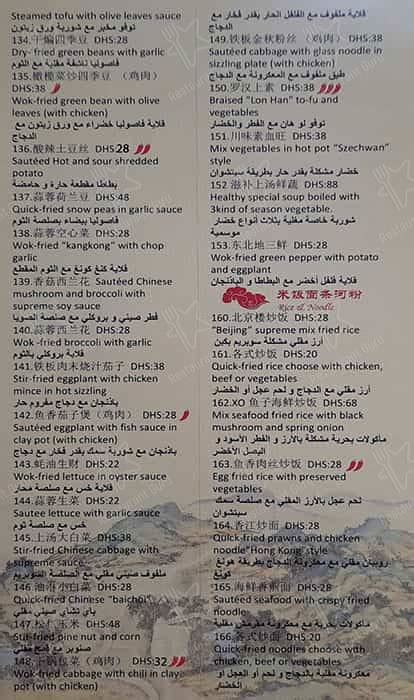 Steamed tofu with olive leaves sauce
توفو مع مخير مع شوربة ورق زيتون
134.干煸四季豆 DHS:28
Dry- fried green beans with garlic
فاصوليا ناشفة مقلية مع الثوم
135.橄榄菜炒四季豆 （鸡肉）
DHS:38
Wok-fried green bean with olive
leaves (with chicken)
قلاية فاصوليا خضراء مع ورق زيتون مع
الدجاج
136.酸辣土豆丝 DHS:28
Sautéed Hot and sour shredded
potato
بطاطا مقطعة حارة و حامضة
137.蒜蓉荷兰豆 DHS:48
Quick-fried snow peas in garlic sauce
قلاية فاصوليا بيضاء بصلصة الثوم
138.蒜蓉空心菜 DHS:28
Wok-fried "kangkong" with chop
garlic
قلاية كنغ كونغ مع الثوم المقطع
139.香菇西兰花 Sautéed Chinese
mushroom and broccoli with
supreme soy sauce
فطر صيني و بروكلي مع صلصة الصويا
140.蒜蓉西兰花 DHS:28
Wok -fried broccoli with garlic
قلاية بروكلي بالثوم
141.铁板肉末烧汁茄子 DHS:38
Stir-fried eggplant with chicken
mince in hot sizzling
باذنجان مع دجاج مفروم حار
142.鱼香茄子煲（鸡肉） DHS:28
Sautéed eggplant with fish sauce in
clay pot (with chicken)
باذنجان مع شوربة سمك بقدر فخار مع دجاج
143.蚝油生财 DHS:22
Wok-fried lettuce in oyster sauce
قلاية خس مع صلصة المحار
144.蒜蓉生菜 DHS:22
Sautee lettuce with garlic sauce
خس مع صلصة ثوم
145.上汤大白菜 DHS:38
Stir-fried Chinese cabbage with
supreme sauce
ملفوف صيني مقلي مع الصلصة السوبريم
146.油泡小白菜 DHS:28
Quick-fried Chinese "baichoi"
باي تشاي صيني مقلي
147.松仁玉米 DHS:48
Stir-fried pine nut and corn
صنوبر مع قمح مقلي
148.干锅包菜（鸡肉） DHS:32
Wok-fried cabbage with chili in clay
pot (with chicken)
قلاية ملفوف مع الفلفل الحار بقدر فخار مع
الدجاج
149.铁板金秋粉丝 （鸡肉）DHS:38
Sautéed cabbage with glass noodle in
sizzling plate (with chicken)
طبق ملفوف مع المعكرونة مع الدجاج
150.罗汉上素 DHS:38
Braised "Lon Han" to-fu and
vegetables
توفو لو هان مع الفطر والخضار
151.川味素血旺 DHS:38
Mix vegetables in hot pot "Szechwan"
style
خضار مشكلة بقدر حار بطريقة سيتشوان
152 滋补上汤鲜蔬 DHS:88
Healthy special soup boiled with
3kind of season vegetable.
شوربة خاصة مغلية بثلاث أنواع خضار
موسمية
153.东北地三鲜 DHS:28
Wok-fried green pepper with potato
and eggplant
قلاية فلفل أخضر مع البطاطا و الباذنجان
米饭面条河粉
Rice & Noodle
160.北京楼炒饭 DHS:28
"Beijing" supreme mix fried rice
أرز مقلي مشكلة سوبريم بكين
161.各式炒饭 DHS:20
Quick-fried rice choose with chicken,
beef or vegetables
أرز مقلي مع الدجاج و لحم عجل أو الخضار
162.XO 鱼子海鲜炒饭 DHS:68
Mix seafood fried rice with black
mushroom and spring onion
مأكولات بحرية مشكلة بالأرز و الفطر الأسود و
البصل الأخضر
163.鱼香肉丝炒饭 DHS:28
Egg fried rice with preserved
vegetables
لحم عجل بالأرز المقلي مع صلصة سمك
سيتشوان
164.香江炒面 DHS:28
Quick-fried prawns and chicken
noodle"Hong Kong"style
روبيان مقلي مع معكرونة الدجاج بطريقة هونغ
كونغ
165.海鲜香煎面 DHS:28
Sautéed seafood with crispy fried
noodle
مأكولات بحرية مع المعكرونة مقرمش مقلية
166.各式炒面 DHS:20
Quick-fried noodles choose with
chicken, beef or vegetables
معكرونة مقلية بالدجاج و لحم أو العجل او
الخضار